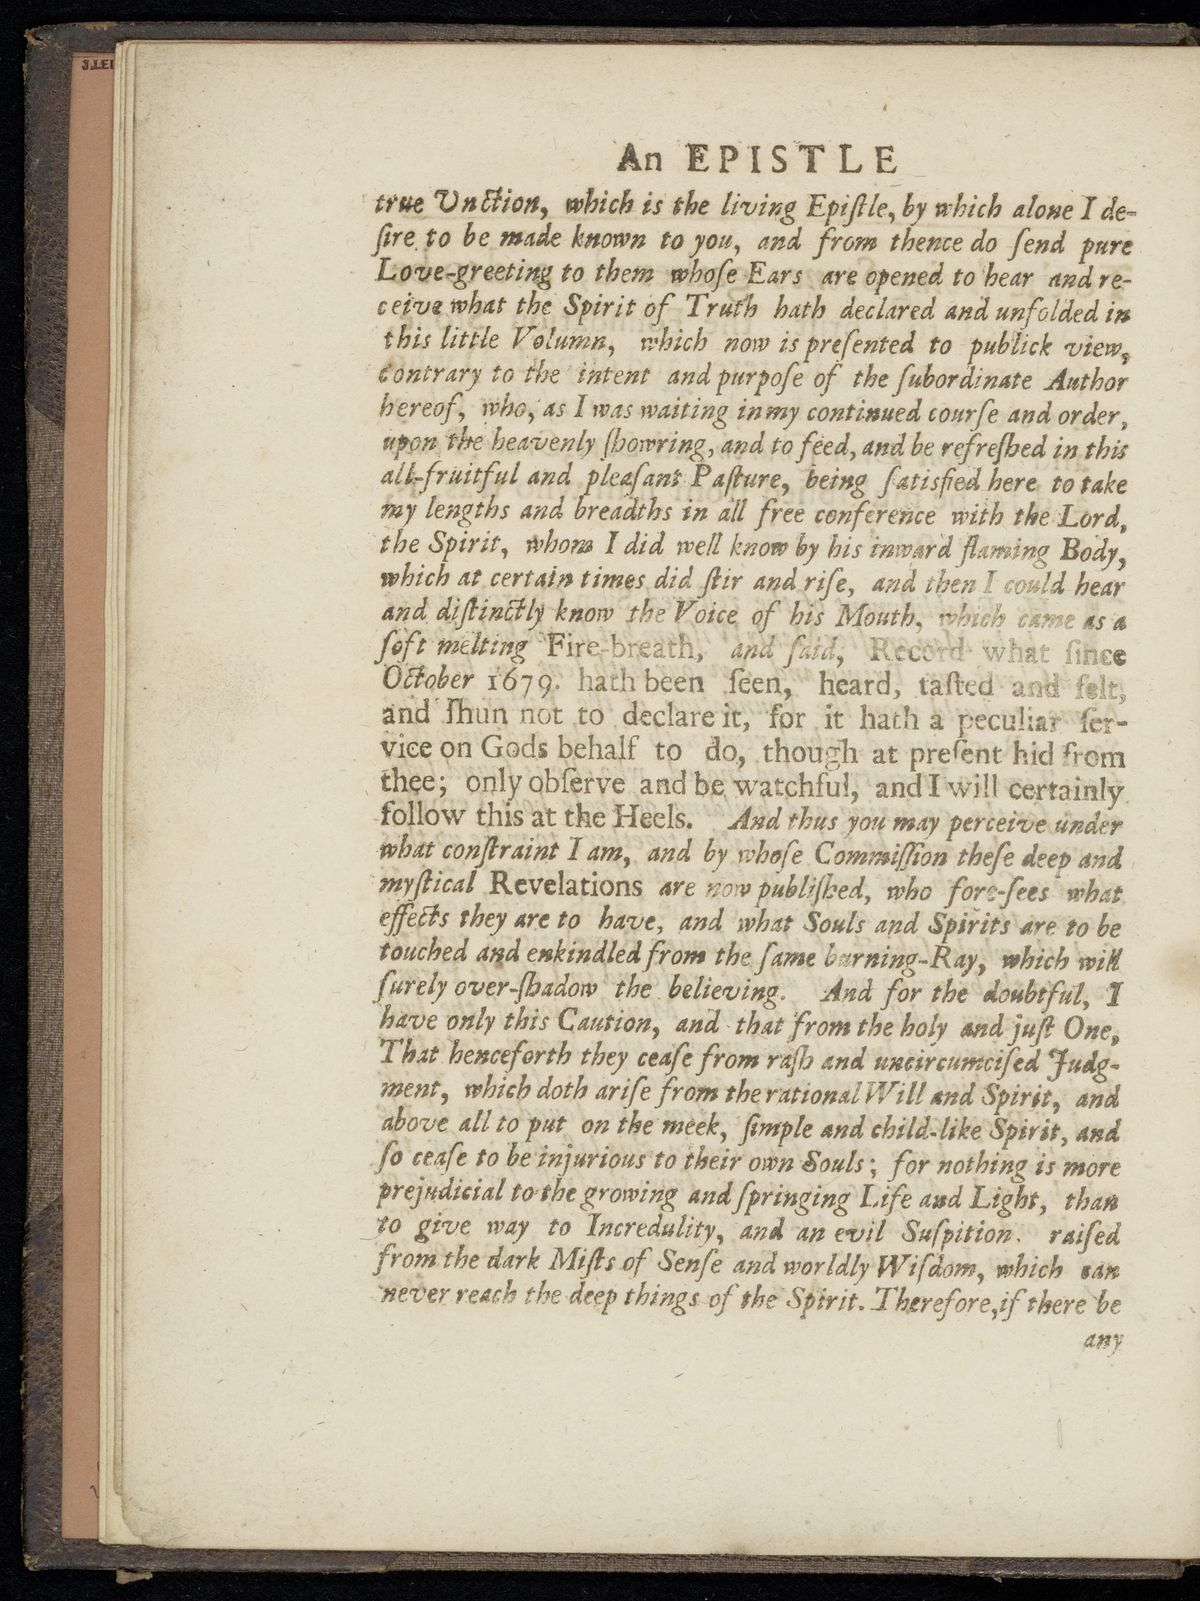 An EPISTLE
true Unction, which is the living Epiſtle, by which alone I de-
ſire to be made known to you, and from thence do ſend pure
Love-greeting to them whoſe Ears are opened to hear and re-
ceive what the Spirit of Truth hath declared and unfolded in
this little Volumn, which now is preſented to publick view,
contrary to the intent and purpoſe of the ſubordinate Author
hereof, who, as I was waiting in my continued courſe and order,
upon the heavenly ſhowring, and to feed, and be refreſhed in this
all-fruitful and pleaſant Paſture, being ſatisfied here to take
my lengths and breadths in all free conference with the Lord,
the Spirit, whom I did well know by his inward flaming Body,
which at certain times did ſtir and riſe, and then I could hear
and diſtinctly know the Voice of his Mouth, which came as a
ſoft melting Fire-breath, and ſaid, Record what ſince
October 1679. hath been ſeen, heard, taſted and felt,
and ſhun not to declare it, for it hath a peculiar ſer-
vice on Gods behalf to do, though at preſent hid from
thee; only obſerve and be watchful, and I will certainly
follow this at the Heels. And thus you may perceive under
what conſtraint I am, and by whoſe Commiſſion theſe deep and
myſtical Revelations are now publiſhed, who fore-ſees what
effects they are to have, and what Souls and Spirits are to be
touched and enkindled from the ſame burning-Ray, which will
ſurely over-ſhadow the believing. And for the doubtful, I
have only this Caution, and that from the holy and juſt One,
That henceforth they ceaſe from raſh and uncircumciſed Judg-
ment, which doth ariſe from the rational Will and Spirit, and
above all to put on the meek, ſimple and child-like Spirit, and
ſo ceaſe to be injurious to their own Souls; for nothing is more
prejudicial to the growing and ſpringing Life and Light, than
to give way to Incredulity, and an evil Suſpition. raiſed
from the dark Miſts of Senſe and worldly Wiſdom, which can
never reach the deep things of the Spirit. Therefore, if there be
any